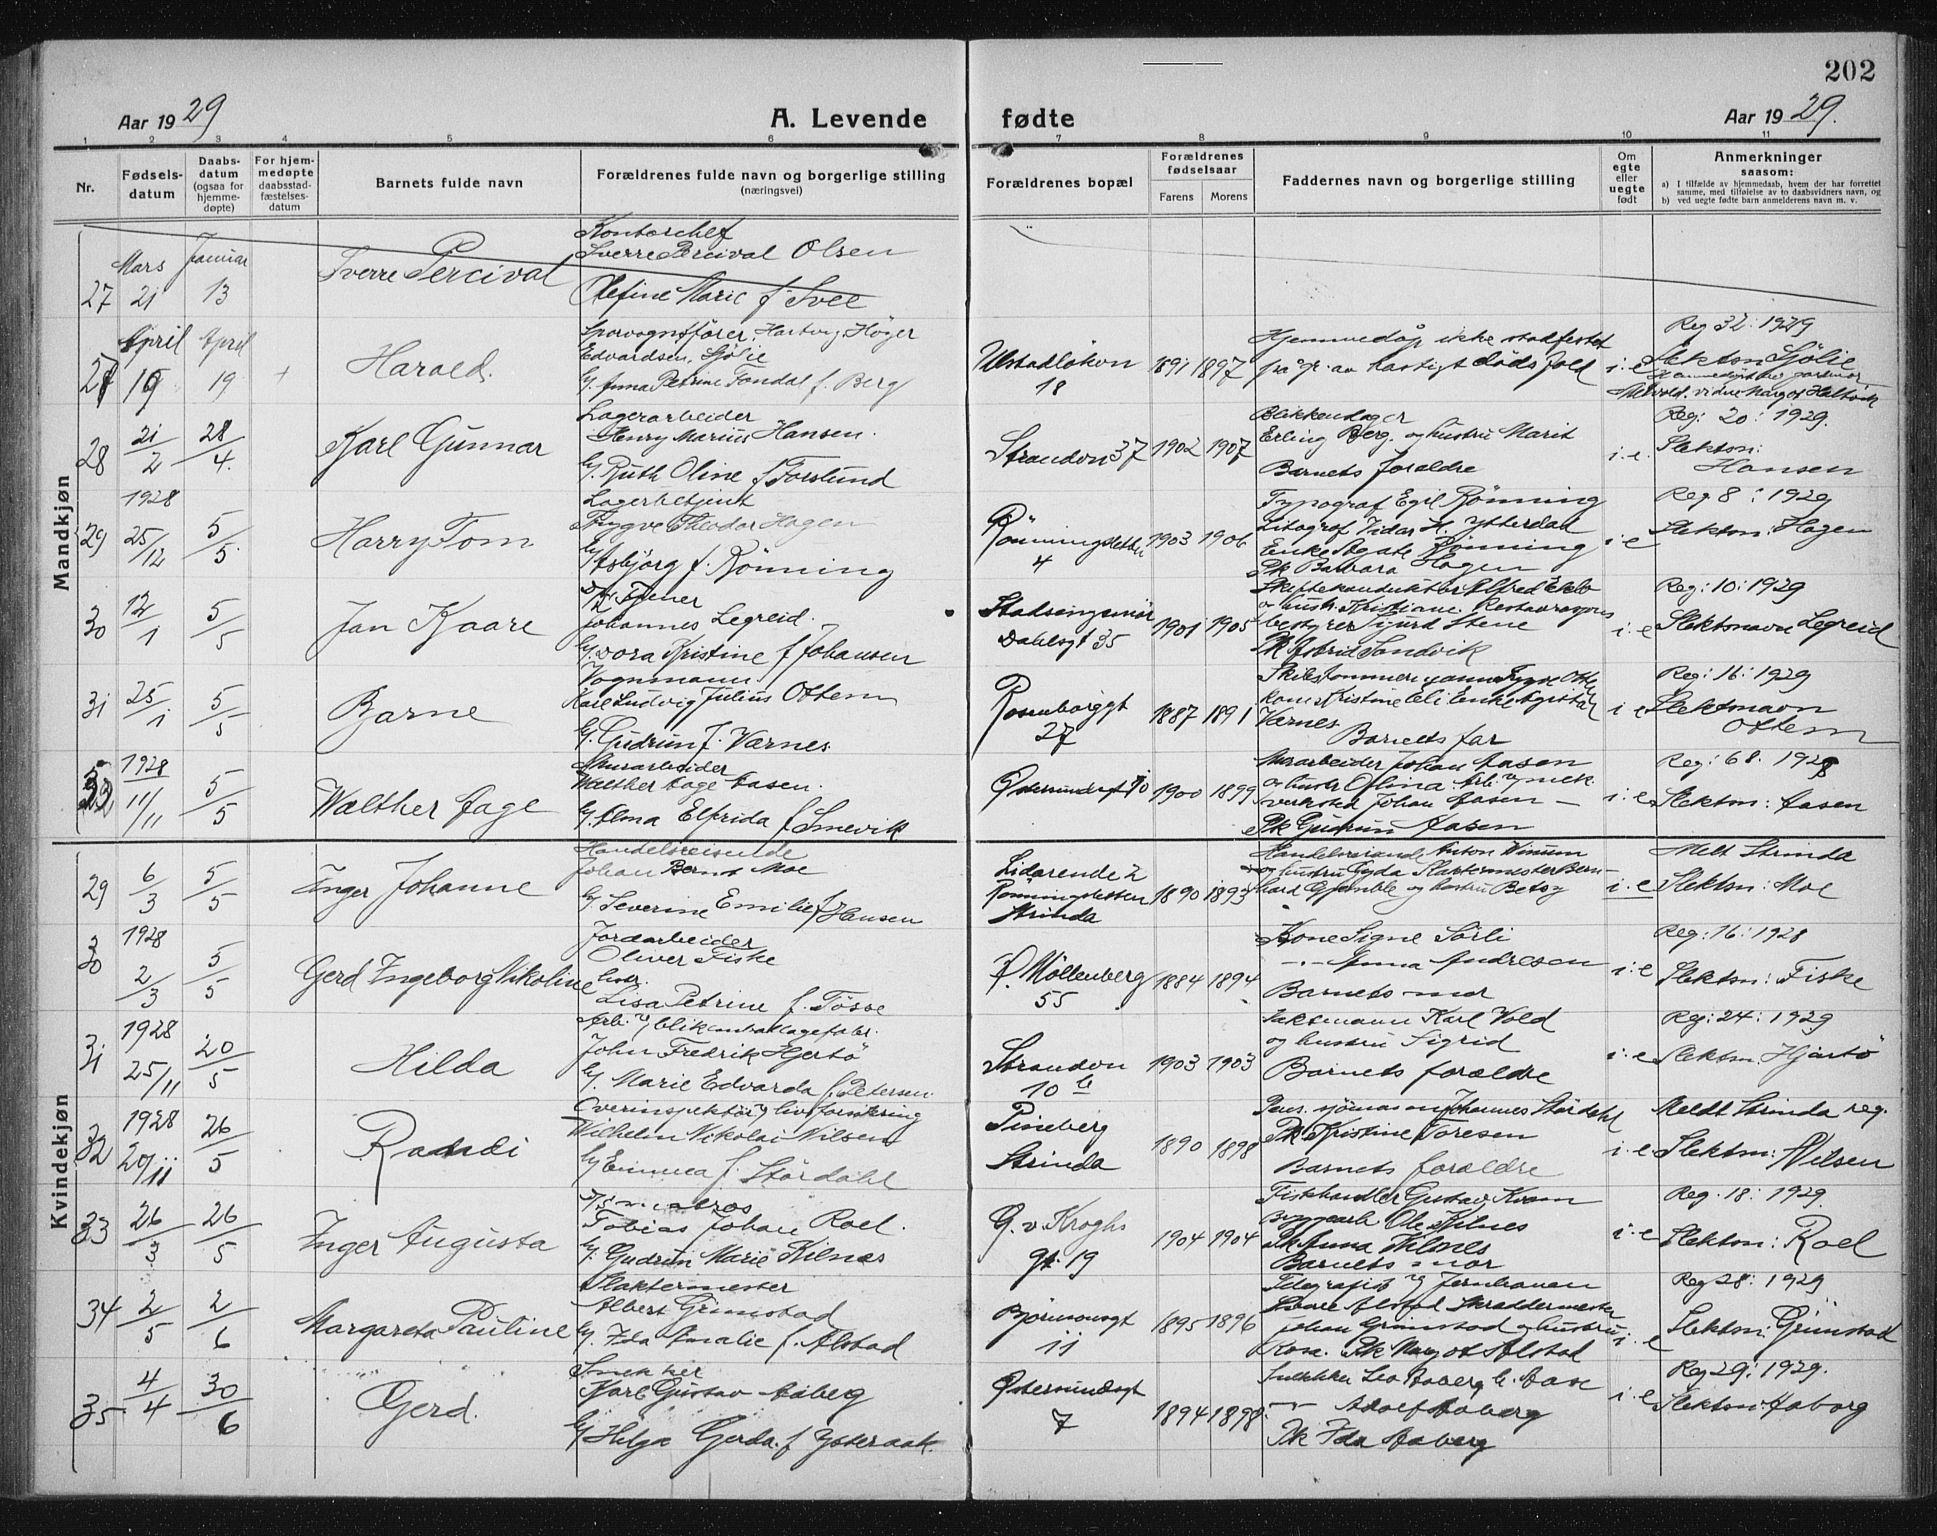 202
Aar 1929
A. Levende fødte
Aar 1929.
1 2 3 4 5 6 7 8 9 10 11
Nr.
Fødsels-
datum
Daabs-
datum
(ogsaa for
hjemme-
døpte)
For hjem-
medøpte
daabsstad-
fæstelses-
datum
Barnets fulde navn
Forældrenes fulde navn og borgerlige stilling
(næringsvei)
Forældrenes bopæl
Forældrenes
fødselsaar
Farens Morens
Faddernes navn og borgerlige stilling
Om
egte
eller
uegte
født
Anmerkninger
saasom:
a) I tilfælde av hjemmedaab, hvem der har forrettet
samme, med tilføielse av to daabsvidners navn, og
b) ved uegte fødte barn anmelderens navn m. v.
Mandkjøn
Kontorchef
Mars Januar
Sverre Percival
Sverre Percival Olsen
27 21 13
Olefine Marie f. Svee
April April
Sporvognsfører Hartvig Höger
Edvardsen Sjölie
27 19 19 +
Harold.
g. Anna Petrine Tondal f. Berg
18
1891 1897
Hjemmedåp ikke stadfestet
på gr. av hastigt dödsfald
i. e
Reg 32: 1929
Slektsn: Sjölie
28 21/2 28/4.
Karl Gunnar
Lagerarbeider
Henry Marius Hansen.
g. Ruth Oline f. Forslund
Strandvn 37
1902 1907
Erling Berg. og hustru Marit
Barnets foraldre
i. e.
Reg: 20: 1929.
Slektsn:
Hansen
29 1928 25/12 5/5
Harry Tom
Lagerbetjent
Trygve Theodor Hagen
g. Asbjörg f. Rönning
Rönningsletten
4
1903 1906
Typograf Egil Rönning
Litograf Vidar M. Ytterdal
Enke Agate Rönning
Pk Barbara Hagen
i. e
Reg 8: 1929
Slektsn: Hagen
30 12/1 5/5
Jan Kaare
Johannes Legreid.
g. Dora Kristine f Johansen
Stadsingeniör
Dahlsgt 35
1901 1905
og hustr. Kristiane. Restaurasjons
bestyrer Sigurd Stene
Pk Astrid Sandvik
i. e
Reg: 10: 1929
Slektsnavn Legreid
31 25/1 5/5
Barne
Vognmann
Karl Ludvig Julius Ottem
g. Gudrun f. Værnes.
Rosenborggt
27
1887 1891
Værnes
Barnets far
i e
Reg: 16: 1929
Slektsnavn
Ottem
1928 11/11 5/5
Walther Aage
Murarbeider
Walther Aage Aasen.
g. Alma Elfrida f Smevik
Östersundsgt 10
1900 1899
Murarbeider Johan Aasen
og hustr Olina. Arb. v. mek.
verksted Johan Aasen
Pk Gudrun Aasen
i: e
Reg: 68. 1928
Slektsn: Aasen
Kvindekjøn
29 6/3 5/5
Inger Johanne
Handelsreisende
Johan Bernt Moe
g. Severine Emilie f Hansen
Lidarende 2
Rönningsletten
Strinda
1890 1893
Handelsreisende Anton Winum
og hustru Gyda Slaktermester Bern-
hard Gjemble og hustru Betsy
i. e
Meldt Strinda
Slektsn: Moe
30 1928 2/3 5/5
Gerd Ingeborg Nikoline
Jordarbeider
Oliver Fiske
Lisa Petrine f. Tösse
Ö. Möllenberg
55
1884 1894
Kone Signe Sörli
Anna Andresen
Barnets mor
i: e
Reg: 16: 1928
Slektsn: Fiske
31 1928 25/11 20/5
Hilda
Arb. v blikemballagefabr.
John Fredrik Hjertö
g. Marie Edvarda f. Petersen
Strandvn
10 b
1903 1903
Karl Vold
og hustru Sigrid
Barnets foraldre
i: e
Reg: 24: 1929
Slektsn: Hjertö
32 1928 20/11 26/5
Randi
Overinspektör v livsforsikring
Wilhelm Nikolai Nilsen
g. Emma f. Stördahl
Pineberg
Strinda
1890 1898
Pens. sjömann Johannes Stördahl
Pk Kristine Toresen
Barnets foraldre
i. e
Meldt Strinda reg.
Slektsn: Nilsen
33 26/3 26/5
Inger Augusta
Tobias Johan Roel.
g. Gudrun Marie Kilnes
G. v. Kroghs
gt. 19
1904 1904
Fiskhandler Gustav Kvam
Bryggearb Ole Kilnes
Pk Anna Kilnes
Barnets mor
i. e
Reg. 18: 1929.
Slektsn: Roel
34 2/5 2/6
Margareta Pauline
Slaktermester
Albert Grimstad
g. Ida Amalie f. Alstad
Björnsonsgt
11
1895 1896
Telegrafist v Jernbanen
Alstad Skreddermester
Johan Grimstad og hustru
Rosa. Pk Margot Alstad
i. e
Reg 28: 1929
Slektsn: Grimstad
35. 4/4 30/6
Gerd.
Karl Gustav Aaberg
g. Helga Gerda f. Ysteraak.
Östersundsgt
7
1894 1898.
Adolf Aaberg
Pk Ida Aaberg
i. e
Reg 29: 1929.
Slektsn: Aaberg